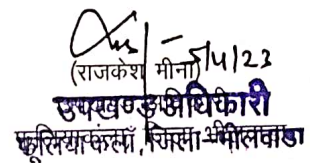 5/4/23
(राजकेश मीना)
उपखण्ड अधिकारी
फूलियाकलाँ, जिला-भीलवाडा